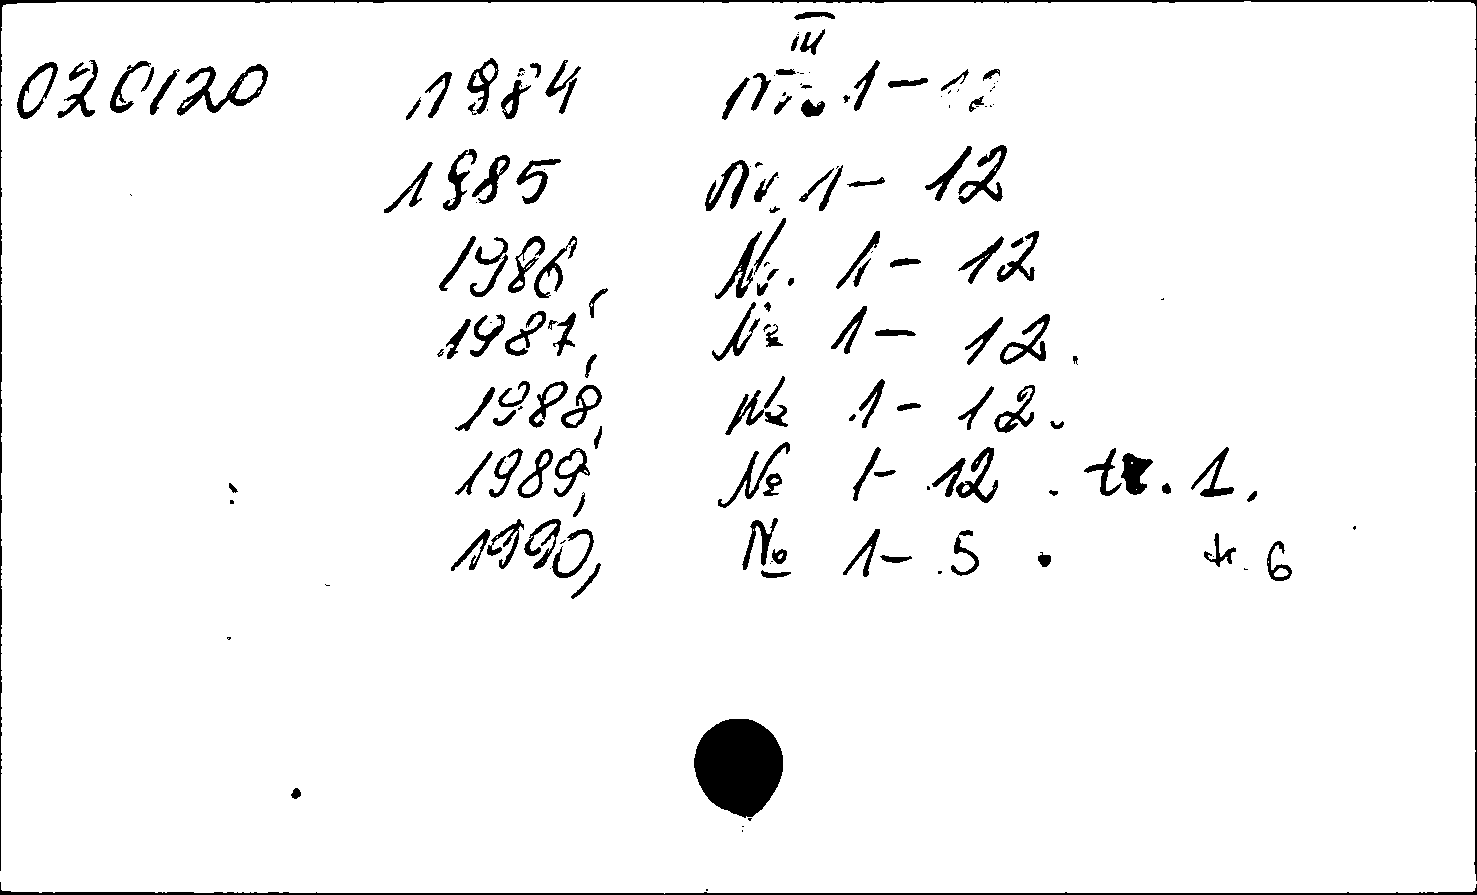 III
020120 1984 Nr. 1-12
1985 Nr. 1-12
1986, Nr. 1-12
1987, № 1-12.
1988, № 1-12.
1989, № 1-12. tr. 1.
1990, № 1-5. tr. 6